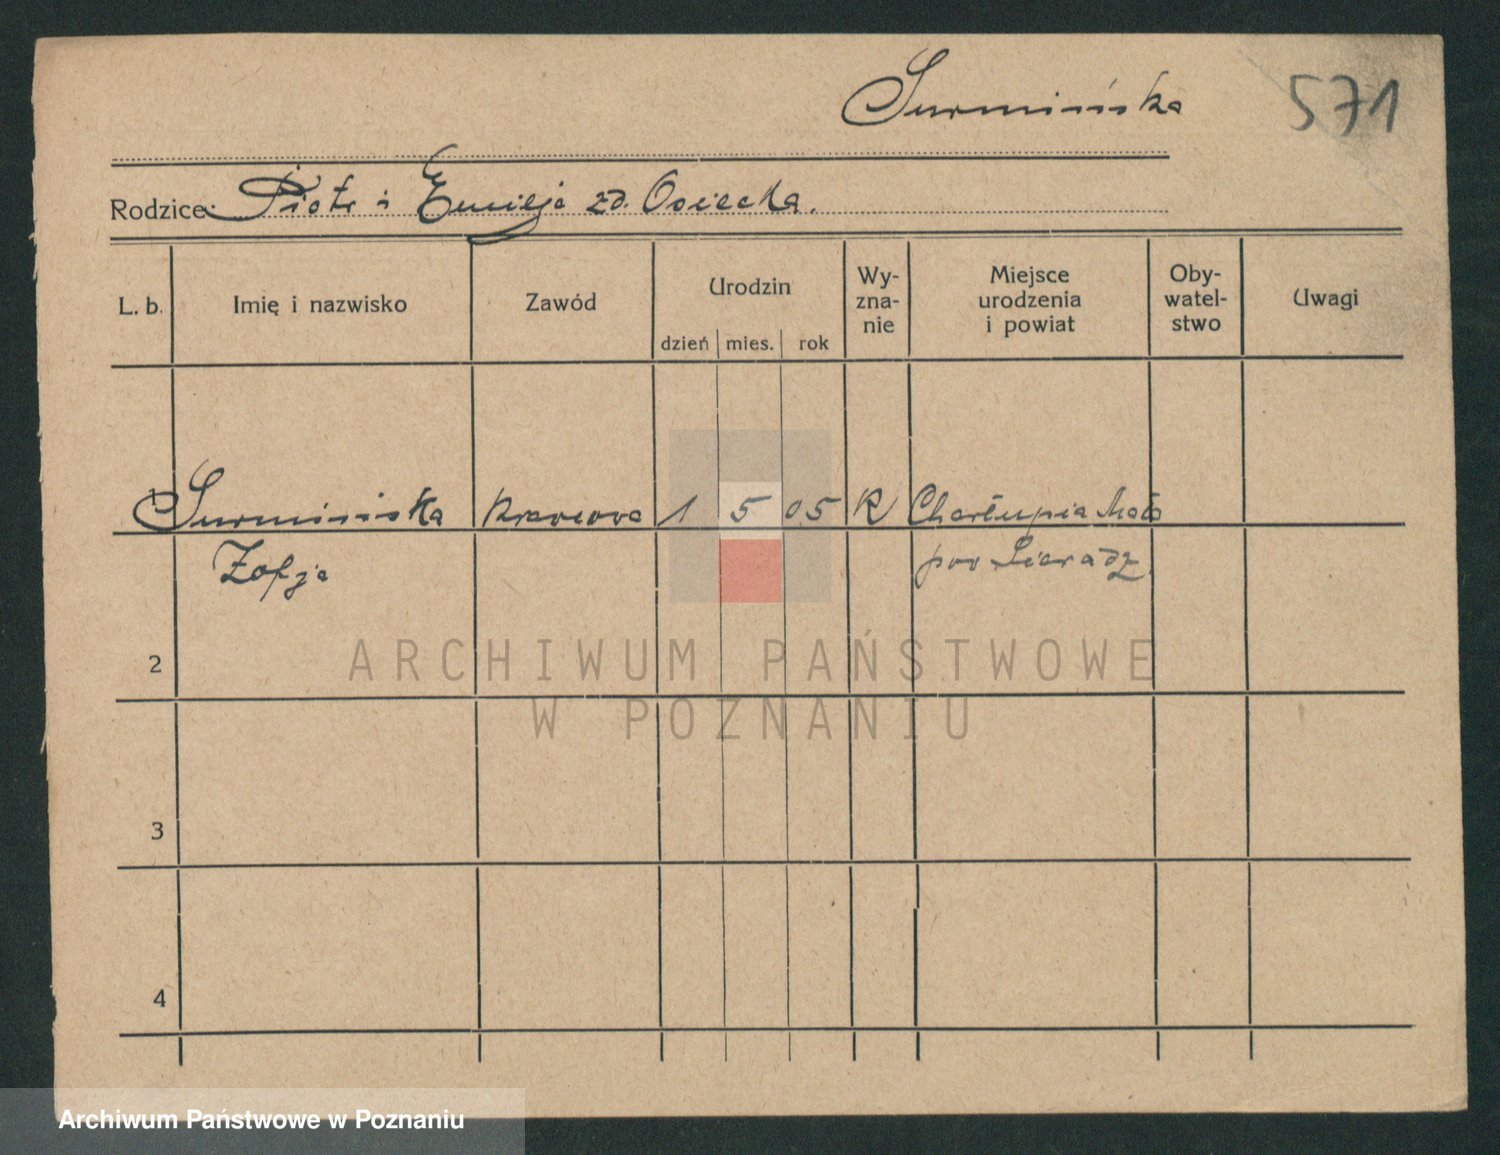 Surmińska 571
Rodzice: Piotr i Emilja zd. Osiecka.
L. b. Imię i nazwisko Zawód Urodzin dzień mies. rok Wy-zna-nie Miejsce urodzenia i powiat Oby-watel-stwo Uwagi
1 Surmińska Krawcowa 1 5 05 R Charłupia Mała
Zofja pow Sieradz
2
ARCHIWUM PAŃSTWOWE
W POZNANIU
3
4
Archiwum Państwowe w Poznaniu